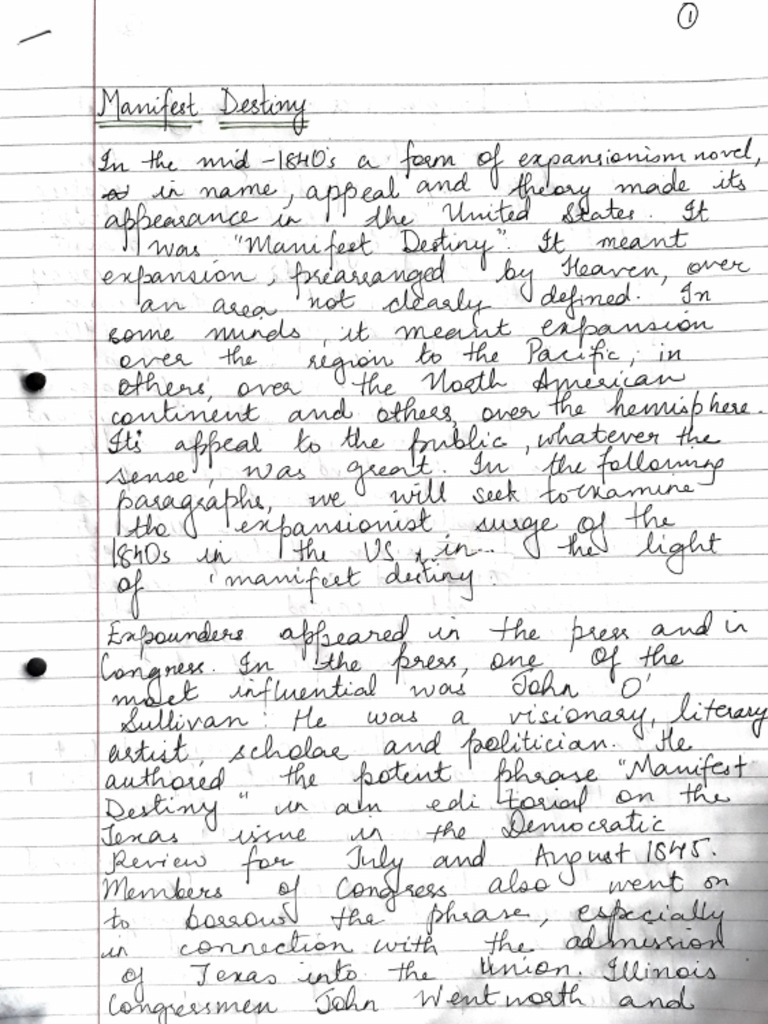 ①
Manifest Destiny
In the mid-1840s a form of expansionism novel,
in name, appeal and theory made its
appearance in the United States. It
was "Manifest Destiny". It meant
expansion, prearranged by Heaven, over
an area not clearly defined. In
some minds, it meant expansion
over the region to the Pacific, in
others, over the North American
continent and others, over the hemisphere.
Its appeal to the public, whatever the
sense, was great. In the following
paragraphs, we will seek to examine
the expansionist surge of the
1840s in the US, in the light
of 'manifest destiny.
Expounders appeared in the press and in
Congress. In the press, one of the
most influential was John O'
Sullivan. He was a visionary, literary
artist, scholar and politician. He
authored the potent phrase "Manifest
Destiny" in an editorial on the
Texas issue in the Democratic
Review for July and August 1845.
Members of Congress also went on
to borrow the phrase, especially
in connection with the admission
of Texas into the Union. Illinois
Congressmen John Wentworth and